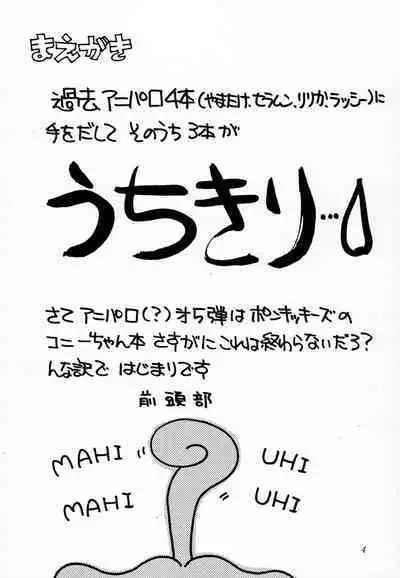 まえがき
過去 アニパロ4本(やまたけ、セラムン、リリカ、ラッシー)に
手をだして そのうち 3本が
うちきり…
さて アニパロ(?) オ5弾は ポンキッキーズの
コニーちゃん本 さすがに これは終わらないだろ?
んな訳で はじまりです
前頭部
MAHI UHI
MAHI UHI
4